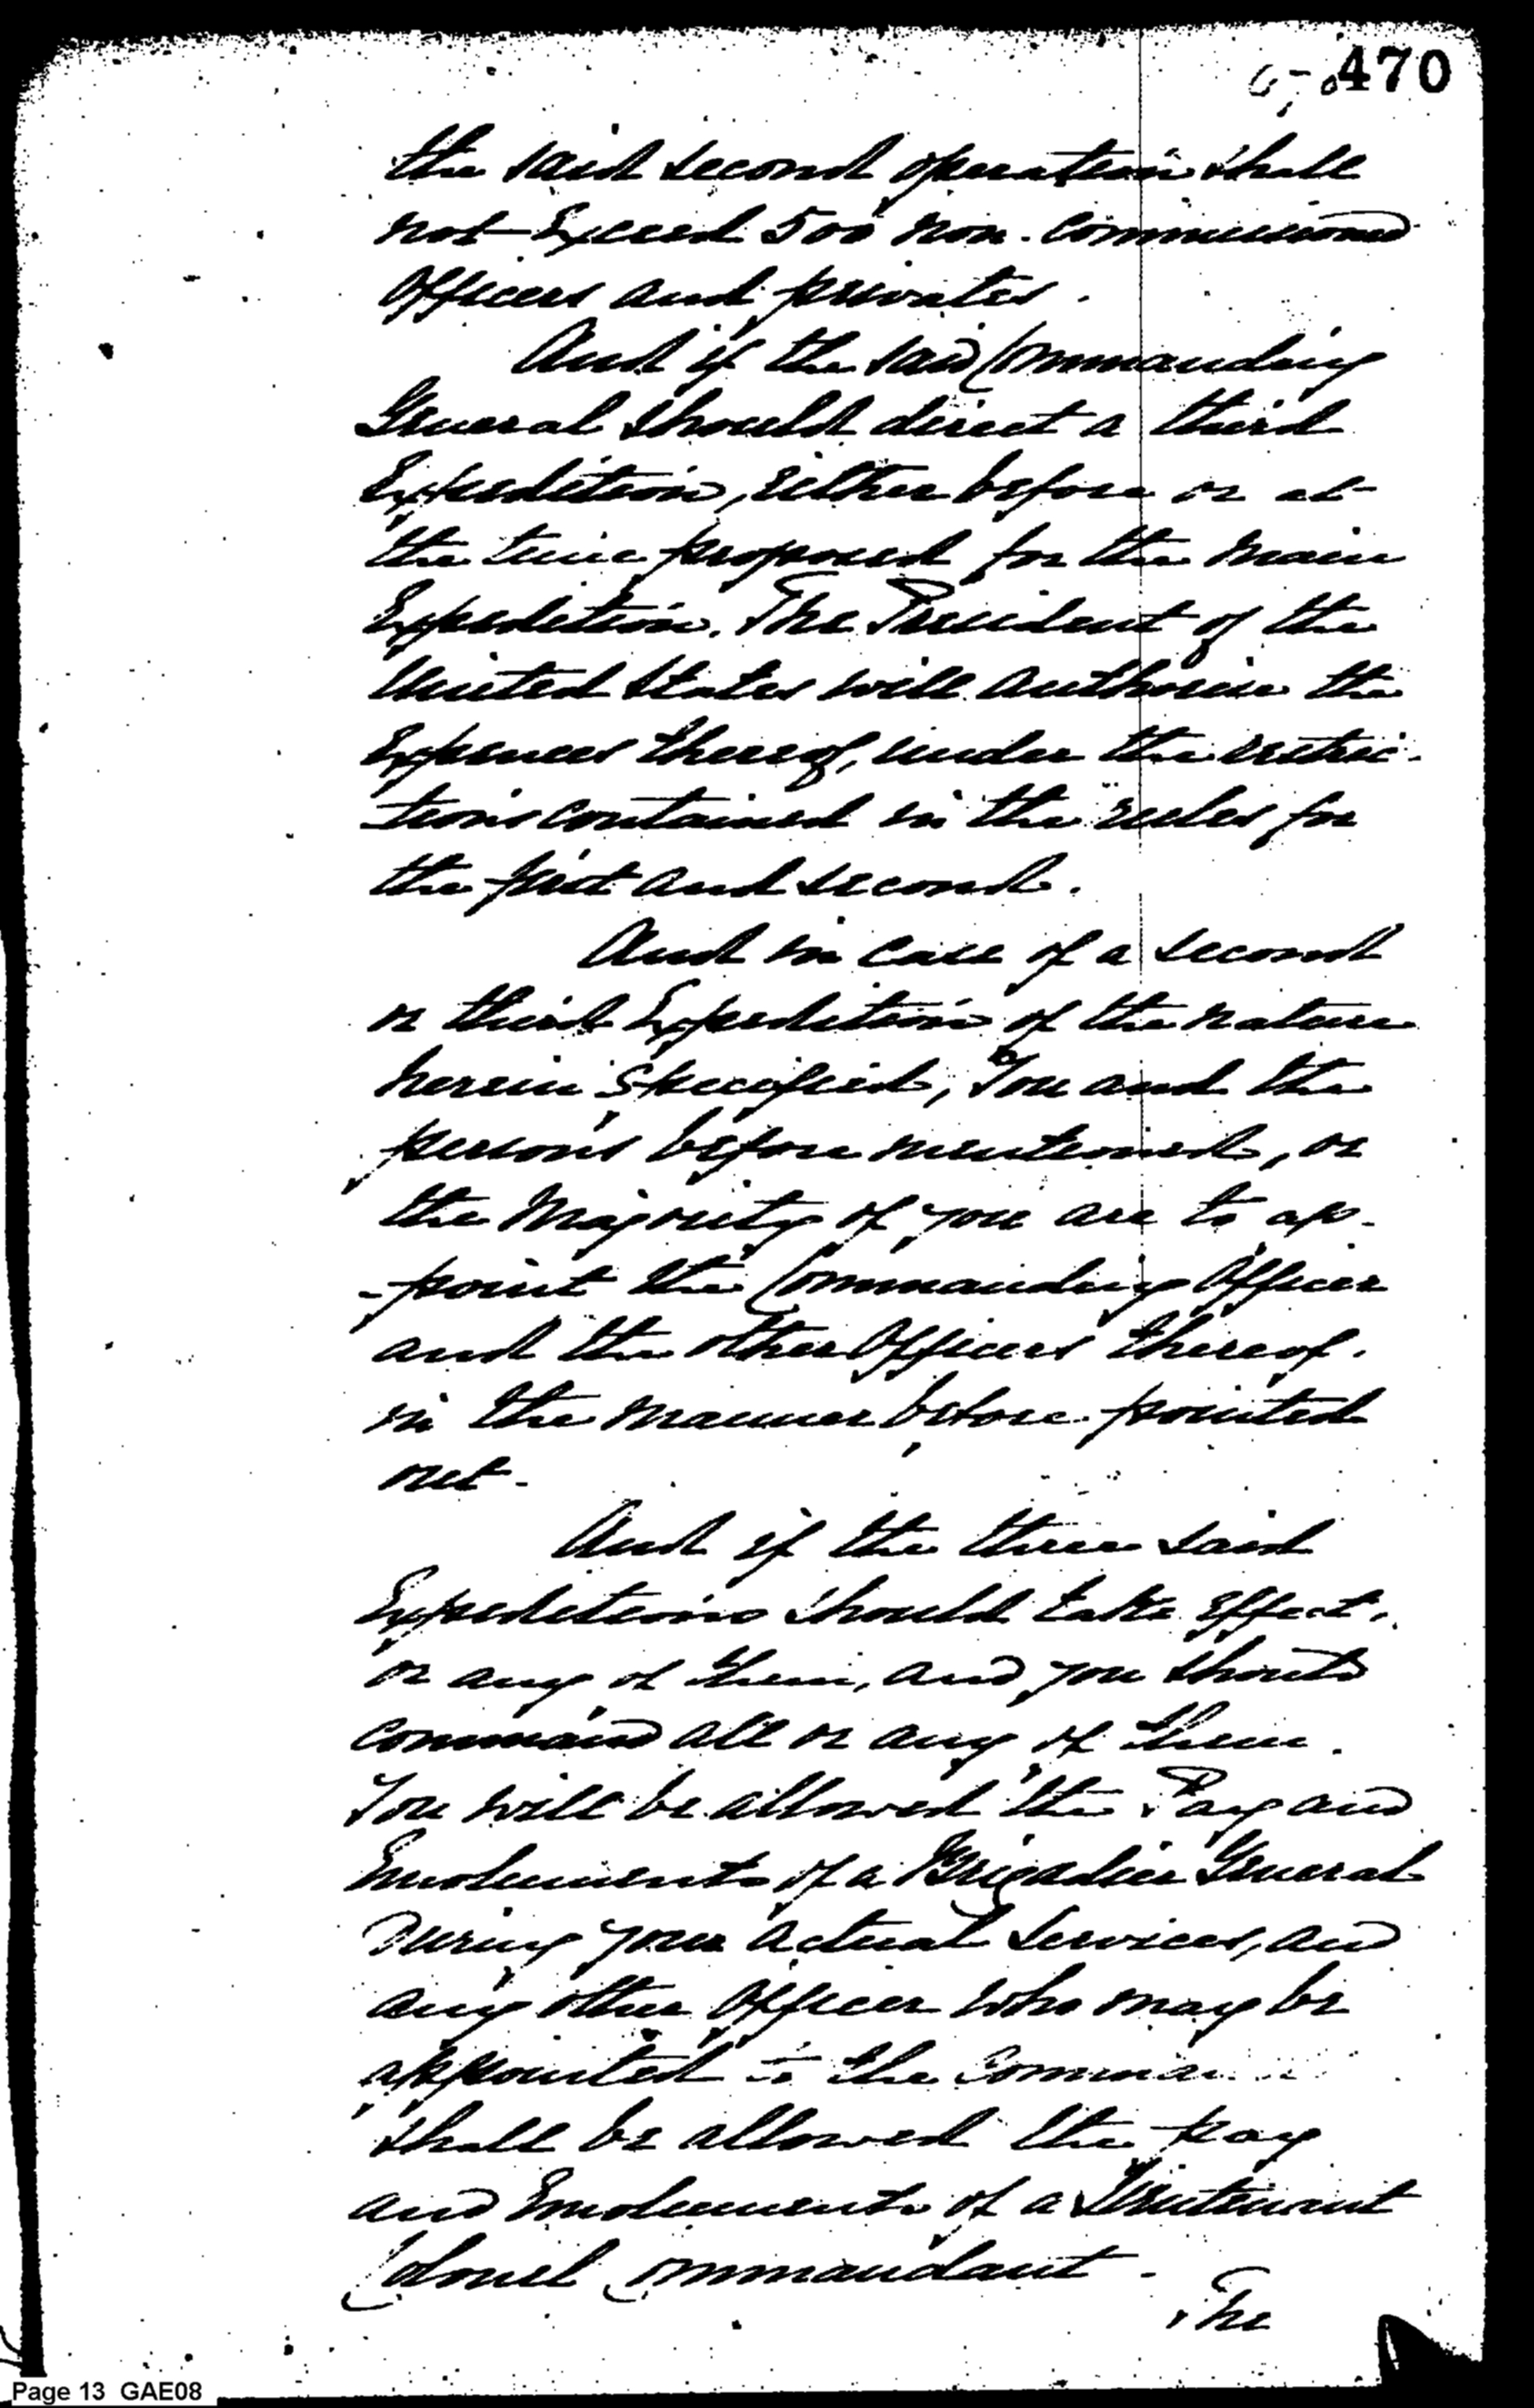 470
the said second operation shall
not Exceed 500 non-Commissioned
Officers and privates.
And if the said Commanding
General should direct a third
Expedition, either before or at
the time proposed for the main
Expedition. The President of the
United States will authorise the
Expences thereof, under the restric-
tions contained in the rules for
the first and second.
And in case of a second
or third Expedition of the nature
herein Specified, You and the
persons before mentioned, or
the Majority of you are to ap-
-point the Commanding Officer
and the other Officers thereof.
in the manner before pointed
out-
And if the three said
Expeditions should take effect,
or any of them, and you should
command all or any of them.
You will be allowed the Pay and
Emoluments of a Brigadier General
During your actual Services, and
any other Officer who may be
appointed to the Comman
shall be allowed the pay
and Emoluments of a Lieutenant
Colonel Commandant.
The
Page 13 GAE08